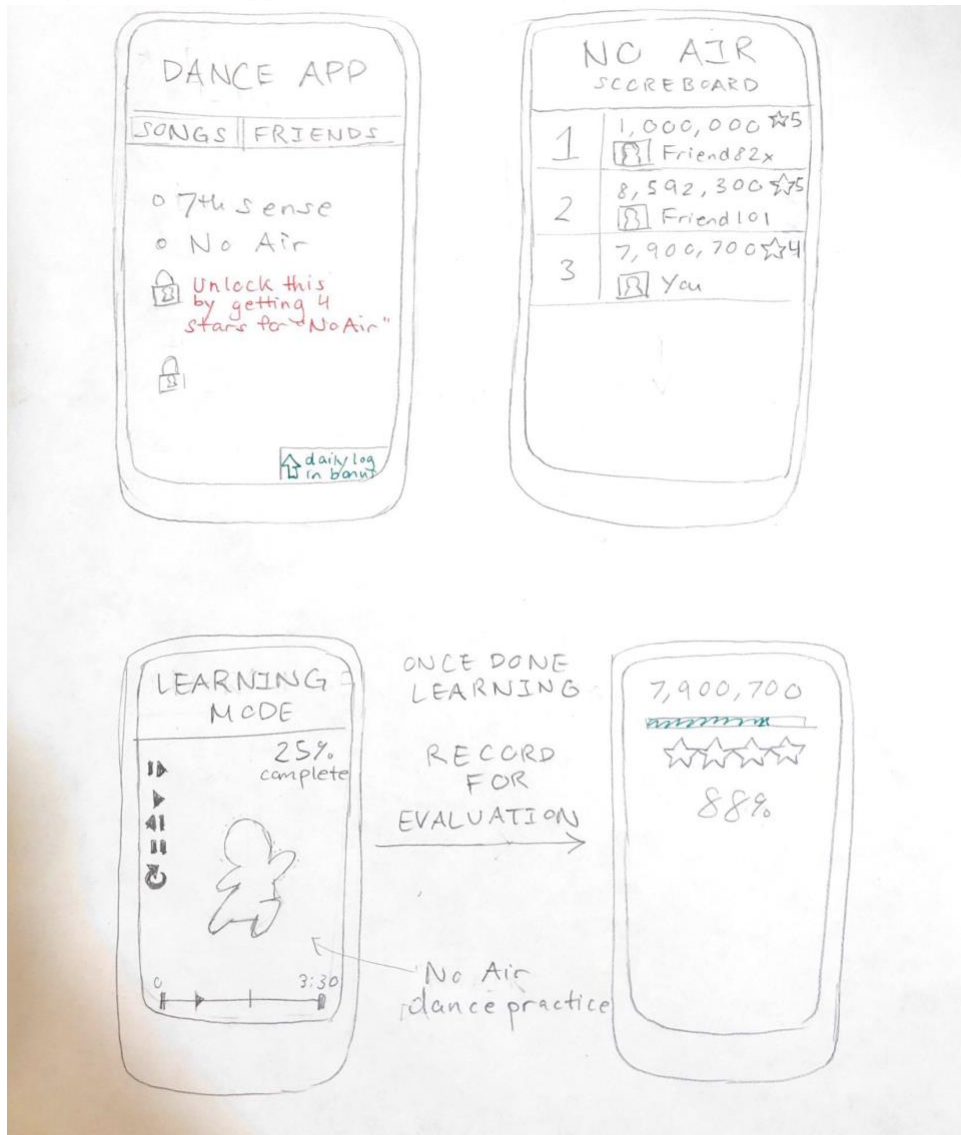 DANCE APP
SONGS FRIENDS
7th sense
No Air
Unlock this
by getting 4
stars for "No Air"
daily log
in bonus
NO AIR
SCOREBOARD
1
1,000,000 ☆5
Friend82x
2
8,592,300 ☆5
Friend101
3
7,900,700 ☆4
You
LEARNING
MODE
25%
complete
0 3:30
ONCE DONE
LEARNING
RECORD
FOR
EVALUATION
No Air
dance practice
7,900,700
88%